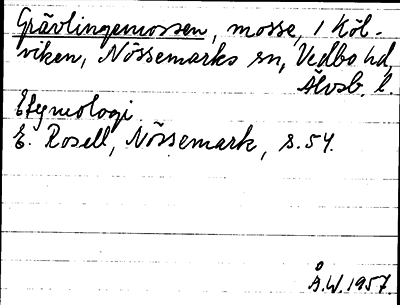 Grävlingemossen, mosse, i Köl-
viken, Nössemarks sn, Vedbo hd,
Älvsb. l.
Etymologi
E. Rosell, Nössemark, s. 54.
Å.W. 1957.